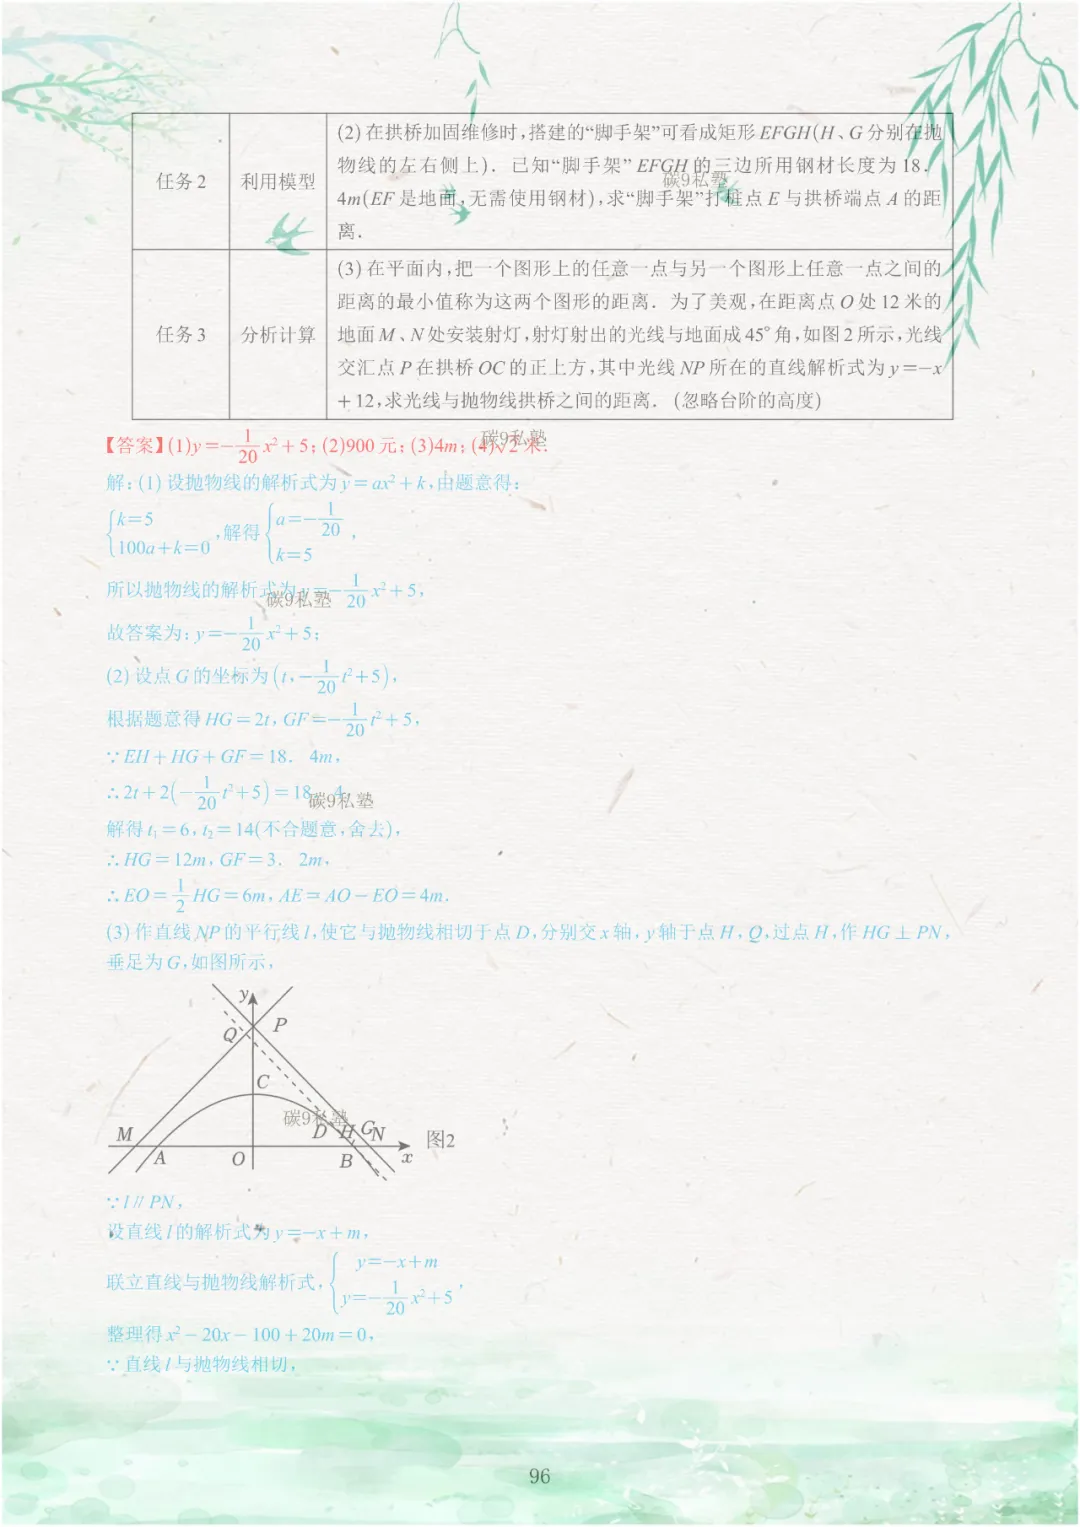 任务2 利用模型 (2)在拱桥加固维修时,搭建的“脚手架”可看成矩形EFGH(H、G分别在抛
物线的左右侧上). 已知“脚手架”EFGH的三边所用钢材长度为18.
4m(EF是地面,无需使用钢材),求“脚手架”打桩点E与拱桥端点A的距
离.
任务3 分析计算 (3)在平面内,把一个图形上的任意一点与另一个图形上任意一点之间的
距离的最小值称为这两个图形的距离. 为了美观,在距离点O处12米的
地面M、N处安装射灯,射灯射出的光线与地面成45°角,如图2所示,光线
交汇点P在拱桥OC的正上方,其中光线NP所在的直线解析式为y=-x
+12,求光线与抛物线拱桥之间的距离. (忽略台阶的高度)
【答案】(1)y=-1/20 x²+5; (2)900元; (3)4m; (4)√2米.
解: (1) 设抛物线的解析式为y=ax²+k,由题意得:
{k=5 100a+k=0 ,解得 {a=-1/20 k=5 ,
所以抛物线的解析式为y=-1/20 x²+5,
故答案为: y=-1/20 x²+5;
(2) 设点G的坐标为(t,-1/20 t²+5),
根据题意得HG=2t, GF=-1/20 t²+5,
∵EH+HG+GF=18. 4m,
∴2t+2(-1/20 t²+5)=18. 4
解得t₁=6, t₂=14(不合题意,舍去),
∴HG=12m, GF=3. 2m,
∴EO=1/2 HG=6m, AE=AO-EO=4m.
(3)作直线NP的平行线l,使它与抛物线相切于点D,分别交x轴, y轴于点H, Q,过点H,作HG⊥PN,
垂足为G,如图所示,
y
Q P
C
M D H G N
A O B x
图2
∵l∥PN,
设直线l的解析式为y=-x+m,
联立直线与抛物线解析式, {y=-x+m y=-1/20 x²+5 ,
整理得x²-20x-100+20m=0,
∵直线l与抛物线相切,
96
碳9私塾
碳9私塾
碳9私塾
碳9私塾
碳9私塾